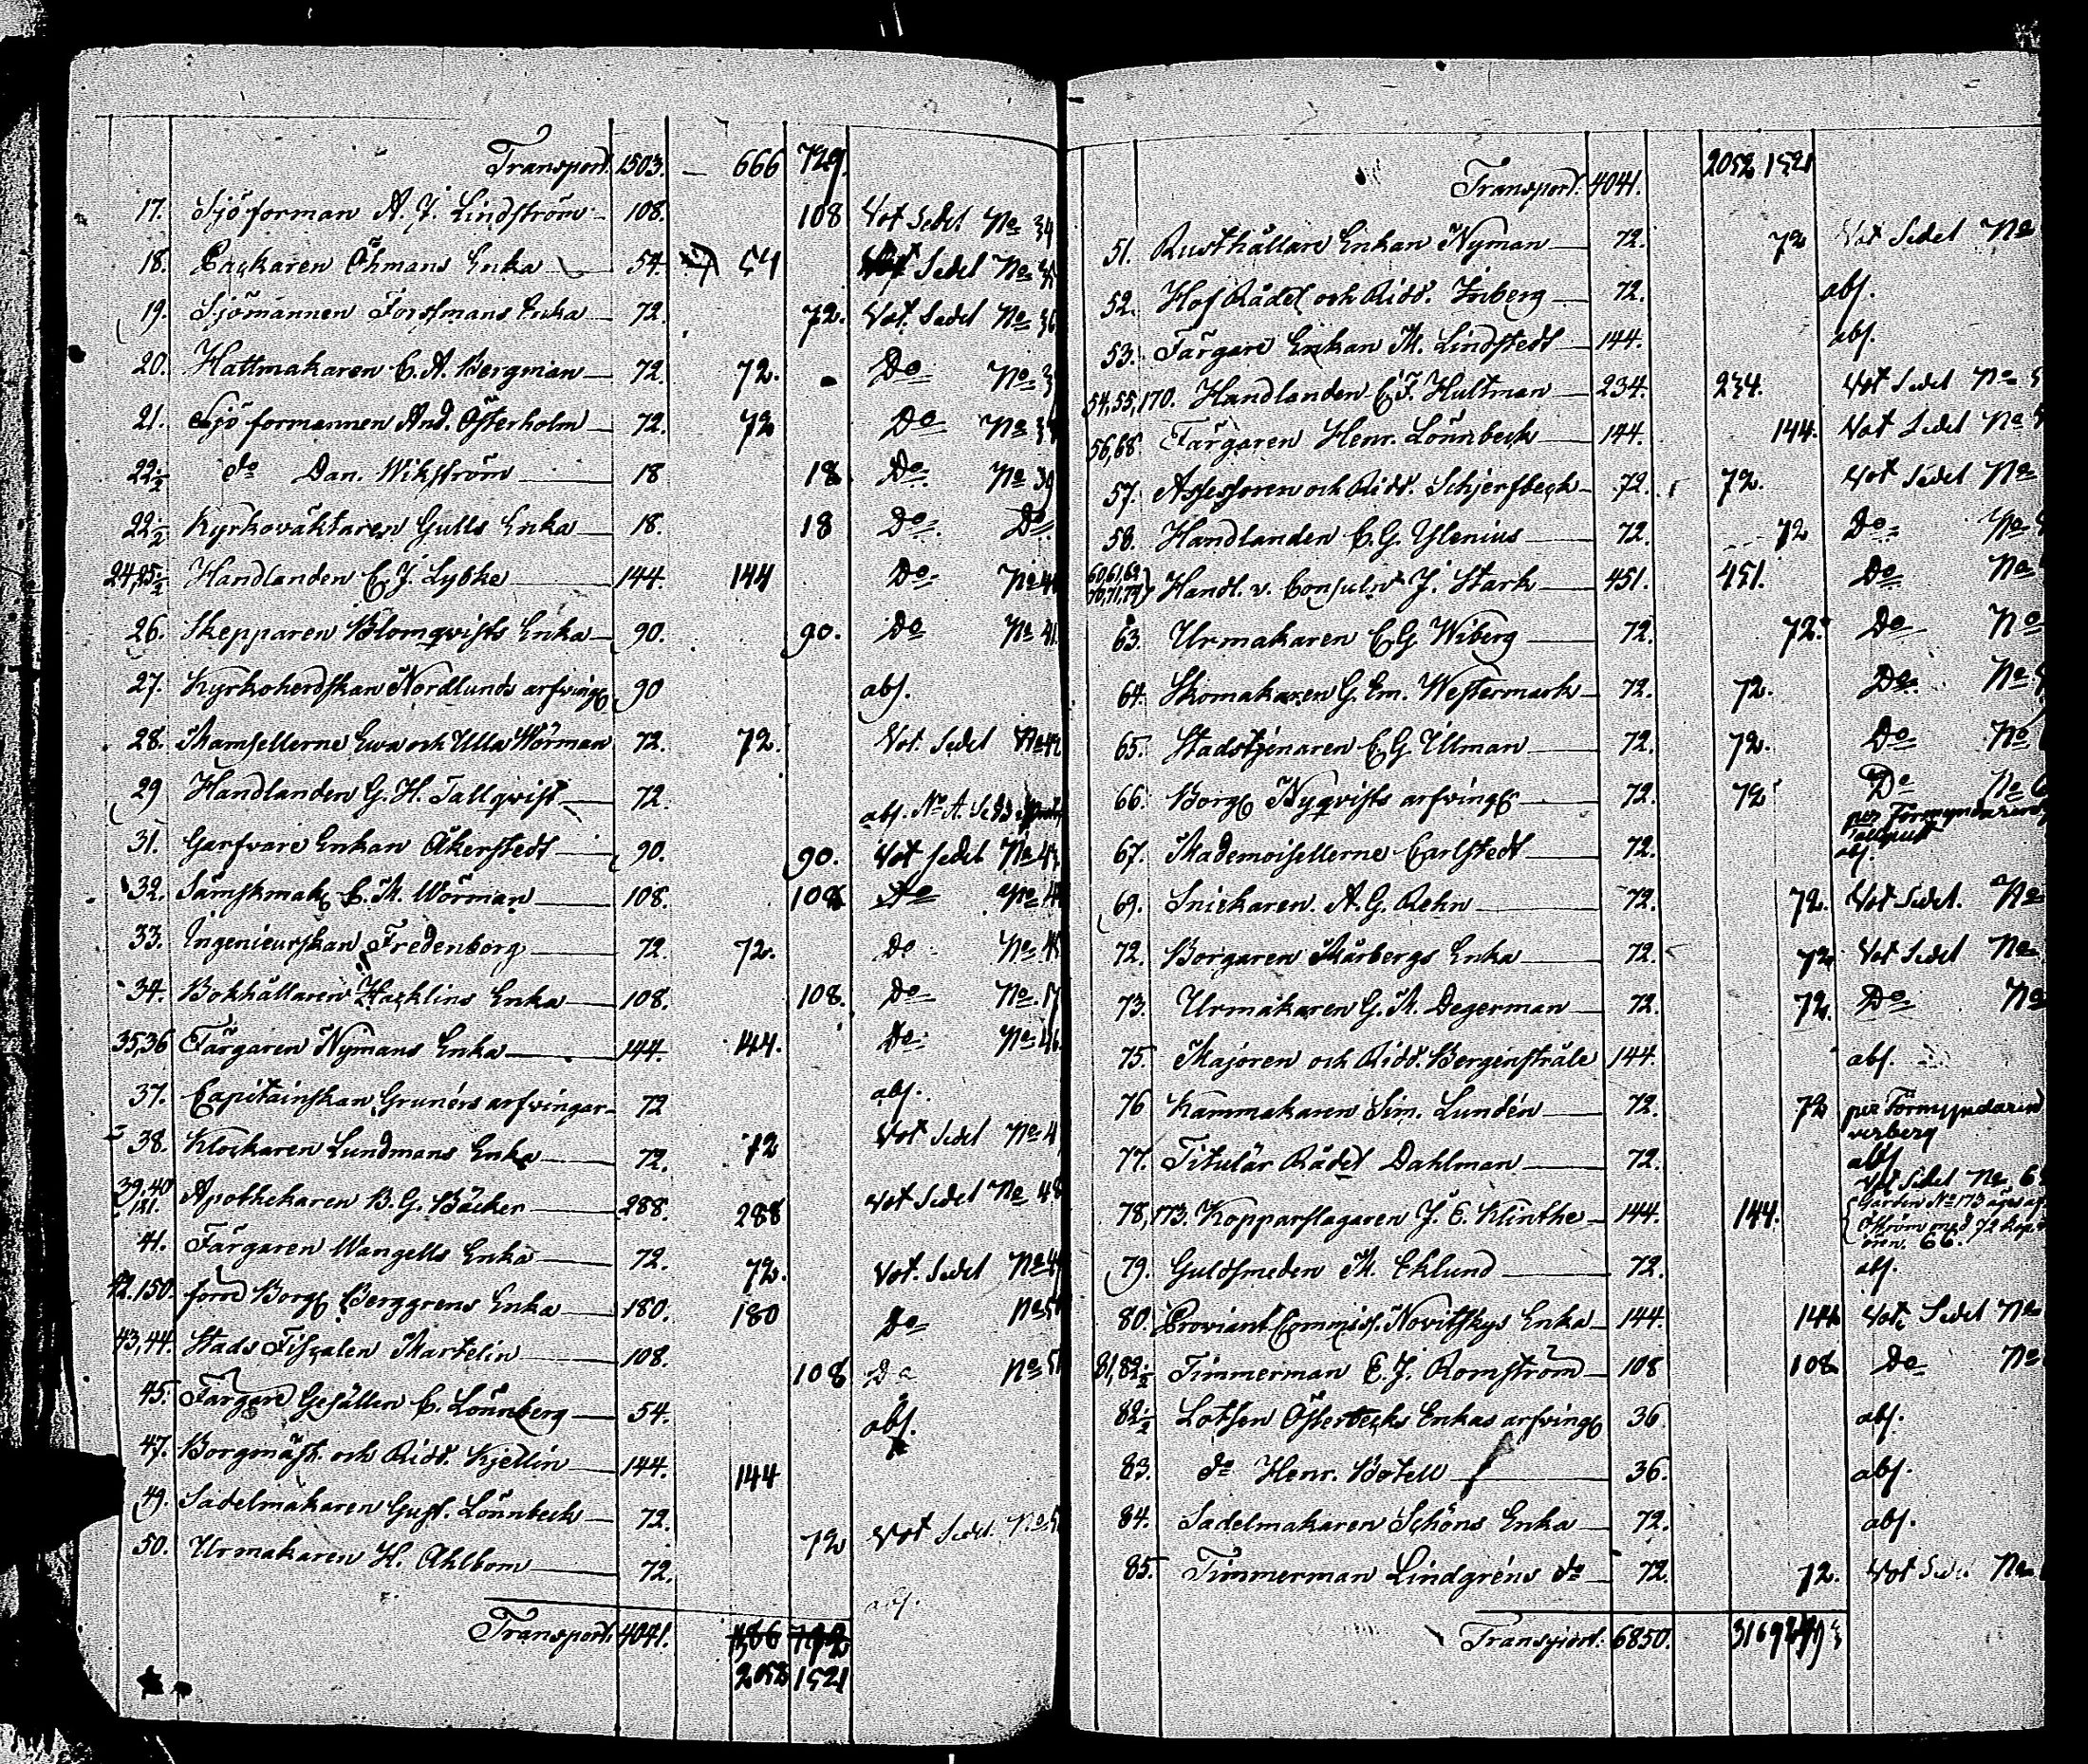 Transport. 1503. — 666 729.
17. Sjöforman A. J. Lindström 108. 108 Vot Sedel No 34
18. Packaren Öhmans Enka 54. 54 Sedel No
19. Sjömannen Forssmans Enka 72. 72. Vot. Sedel No 36
20. Hattmakaren C. A. Bergman 72. 72. Do No
21. Sjöformannen And. Österholm 72. 72 Do No
22 1/2 do Dan. Wikström 18 18 Do No 39
22 1/2 Kyrkovaktaren Gulls Enka 18. 18 Do Do
24, 25 1/2 Handlanden C. J. Lybke 144. 144 Do No
26. Skepparen Blomqvists Enka 90. 90. Do No 41
27. Kyrkoherdskan Nordlunds arfving 90 abs.
28. Mamsellerne Ewa och Ulla Wörman 72. 72. Vot. Sedel No 42
29 Handlanden G. H. Tallqvist 72. abs. No A.
31. Garfvare Enkan Åkerstedt 90. 90. Vot sedel No 43
32. Sämskmak C. M. Wörman 108. 108 Do No
33. Ingenieurskan Fredenborg 72. 72. Do No
34. Bokhållaren Hacklins Enka 108. 108. Do No
35,36 Färgaren Nymans Enka 144. 144. Do No 46
37. Capitainskan Grunérs arfvingar 72 abs.
38. Klockaren Lundmans Enka 72. 72 Vot Sedel No
39,40 121. Apothekaren B. G. Bäcker 288. 288 Vot Sedel No 48
41. Färgaren Wangells Enka 72. 72. Vot. Sedel No
42. 150. förre Borg Berggrens Enka 180. 180 Do No
43, 44. Stads Fiscalen Martelin 108. 108 Do No
45. Färgare Gesällen C. Lönnberg 54. abs.
47. Borgmäst. och Ridd. Kjellin 144. 144
49. Sadelmakaren Gust. Lönnbeck 72. 72 Vot Sedel. No
50. Urmakaren H. Ahlbom 72. abs.
Transport. 4041.
2052 1521
Transport. 4041. 2052 1521
51. Rusthållare Enkan Nyman 72. 72 Vot Sedel No
52. Hof Rådet och Ridd. Friberg 72. abs.
53. Färgare Enkan M. Lindstedt 144. abs.
54, 55, 170. Handlanden C. F. Hultman 234. 234. Vot Sedel No
56,68. Färgaren Henr. Lönnbeck 144. 144. Vot Sedel No
57. Assessoren och Ridd. Schjerfbeck 72. 72. Vot Sedel No
58. Handlanden C. G. Ylenius 72. 72 Do No
60,61,62 70,71,74 Handl. v. Consuln J. Stark 451. 451. Do No
63. Urmakaren C G Wiberg 72. 72. Do No
64. Skomakaren G. Em. Westermark 72. 72. Do No
65. Stadstjenaren C G Ullman 72. 72. Do No
66. Borg Nyqvists arfving 72. 72 Do No
per Förmyndaren
67. Mademoisellerne Carlstedt 72. abs.
69. Snickaren. A. G. Rehn 72. 72. Vot Sedel. No
72. Borgaren Mårbergs Enka 72. 72 Vot Sedel No
73. Urmakaren G. M. Degerman 72. 72. Do No
75. Majoren och Ridd. Bergenstråle 144. abs.
76 Kammakaren Sim. Lundén 72. 72 per Förmyndaren
77. Titulär Rådet Dahlman 72. abs
Vot Sedel No
78, 173. Kopparslagaren J. E. Klinthe 144. 144. Gården No 173 äges af
Öström med 72 kop.
79. Guldsmeden M. Eklund 72. abs.
80. Proviant Commiss. Novitskys Enka 144. 144 Vot. Sedel No
81,82 1/2 Timmerman E. J. Romström 108 108 Do No
82 1/2 Lotsen Österbecks Enkas arfving 36 abs.
83. do Henr. Botell 36. abs.
84. Sadelmakaren Schöns Enka 72. abs.
85. Timmerman Lindgréns do 72. 72. Vot Sedel No
Transport. 6850. 3169